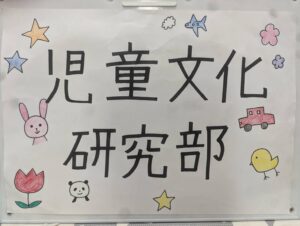 児童文化
研究部